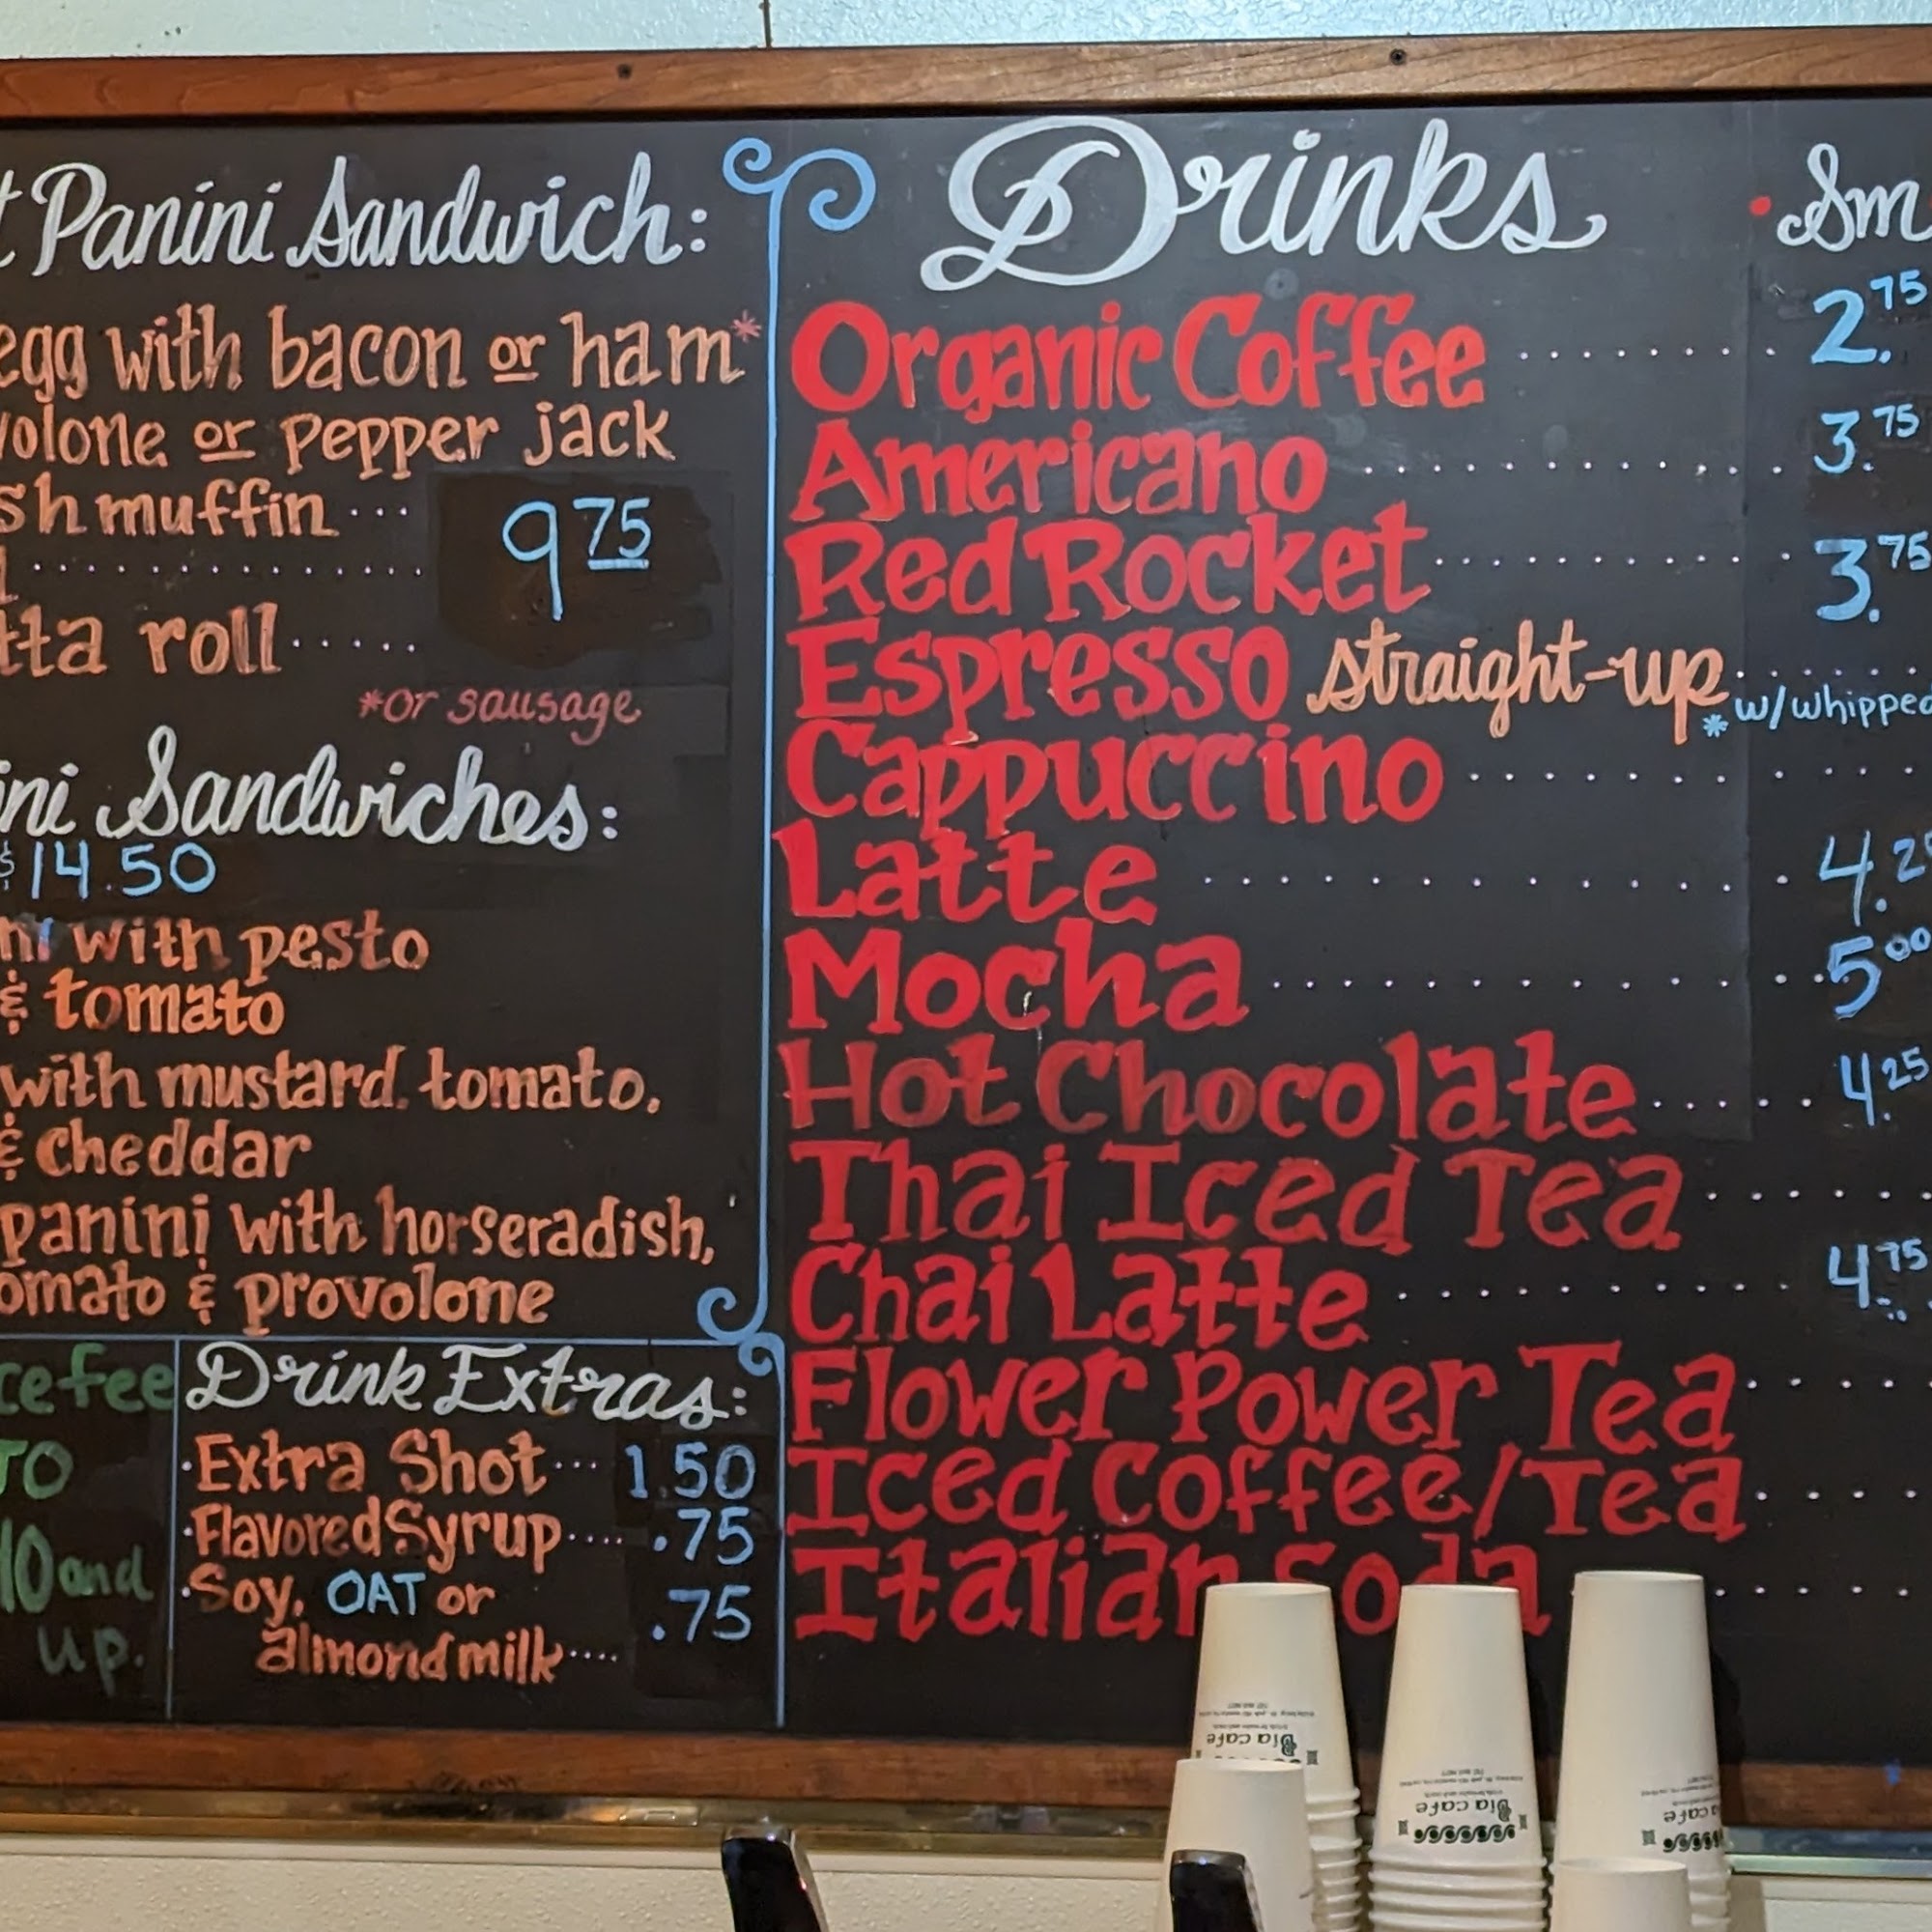 Panini Sandwich:
egg with bacon or ham*
volone or pepper jack
sh muffin ... 9 75
tta roll .....
*or sausage
ini Sandwiches:
$14.50
ni with pesto
& tomato
with mustard, tomato,
& cheddar
panini with horseradish,
omato & provolone
ce fee
TO
10 and
up.
Drink Extras:
·Extra Shot ... 1.50
·Flavored Syrup .... .75
·Soy, OAT or
almond milk .... .75
Drinks Sm
Organic Coffee ........ 2.75
Americano ............ 3.75
Red Rocket .......... 3.75
Espresso straight-up .....
*w/whipped
Cappuccino ...........
Latte ............ 4.2
Mocha ............ 5.00
Hot Chocolate ..... 4.25
Thai Iced Tea ......
Chai Latte .......... 4.75
Flower Power Tea ....
Iced Coffee/Tea ....
Italian Soda ....
Día cafe
Día cafe
ía cafe